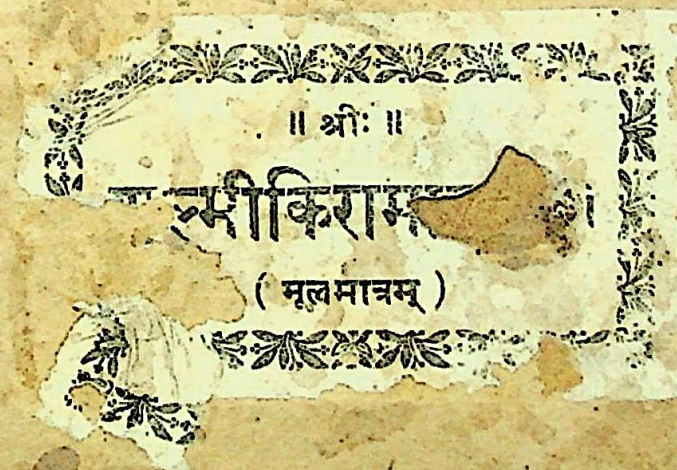 ॥ श्रीः ॥
ल्मीकिराम
( मूलमात्रम् )